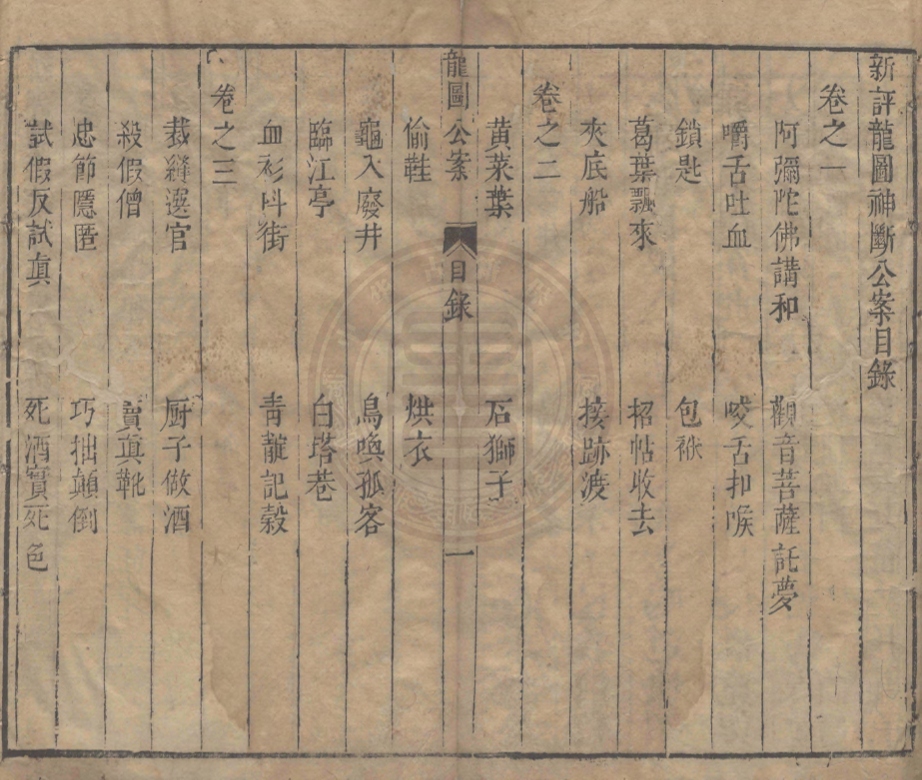 新評龍圖神斷公案目錄
卷之一
阿彌陀佛講和 觀音菩薩託夢
嚼舌吐血 咬舌扣喉
鎖匙 包袱
葛葉飄來 招帖收去
夾底船 接跡渡
卷之二
黃菜葉 石獅子
龍圖公案 目錄 一
偷鞋 烘衣
龜入廢井 鳥喚孤客
臨江亭 白塔巷
血衫叫街 青靛記穀
卷之三
裁縫選官 厨子做酒
殺假僧 賣真靴
忠節隱匿 巧拙顛倒
試假反試真 死酒實死色